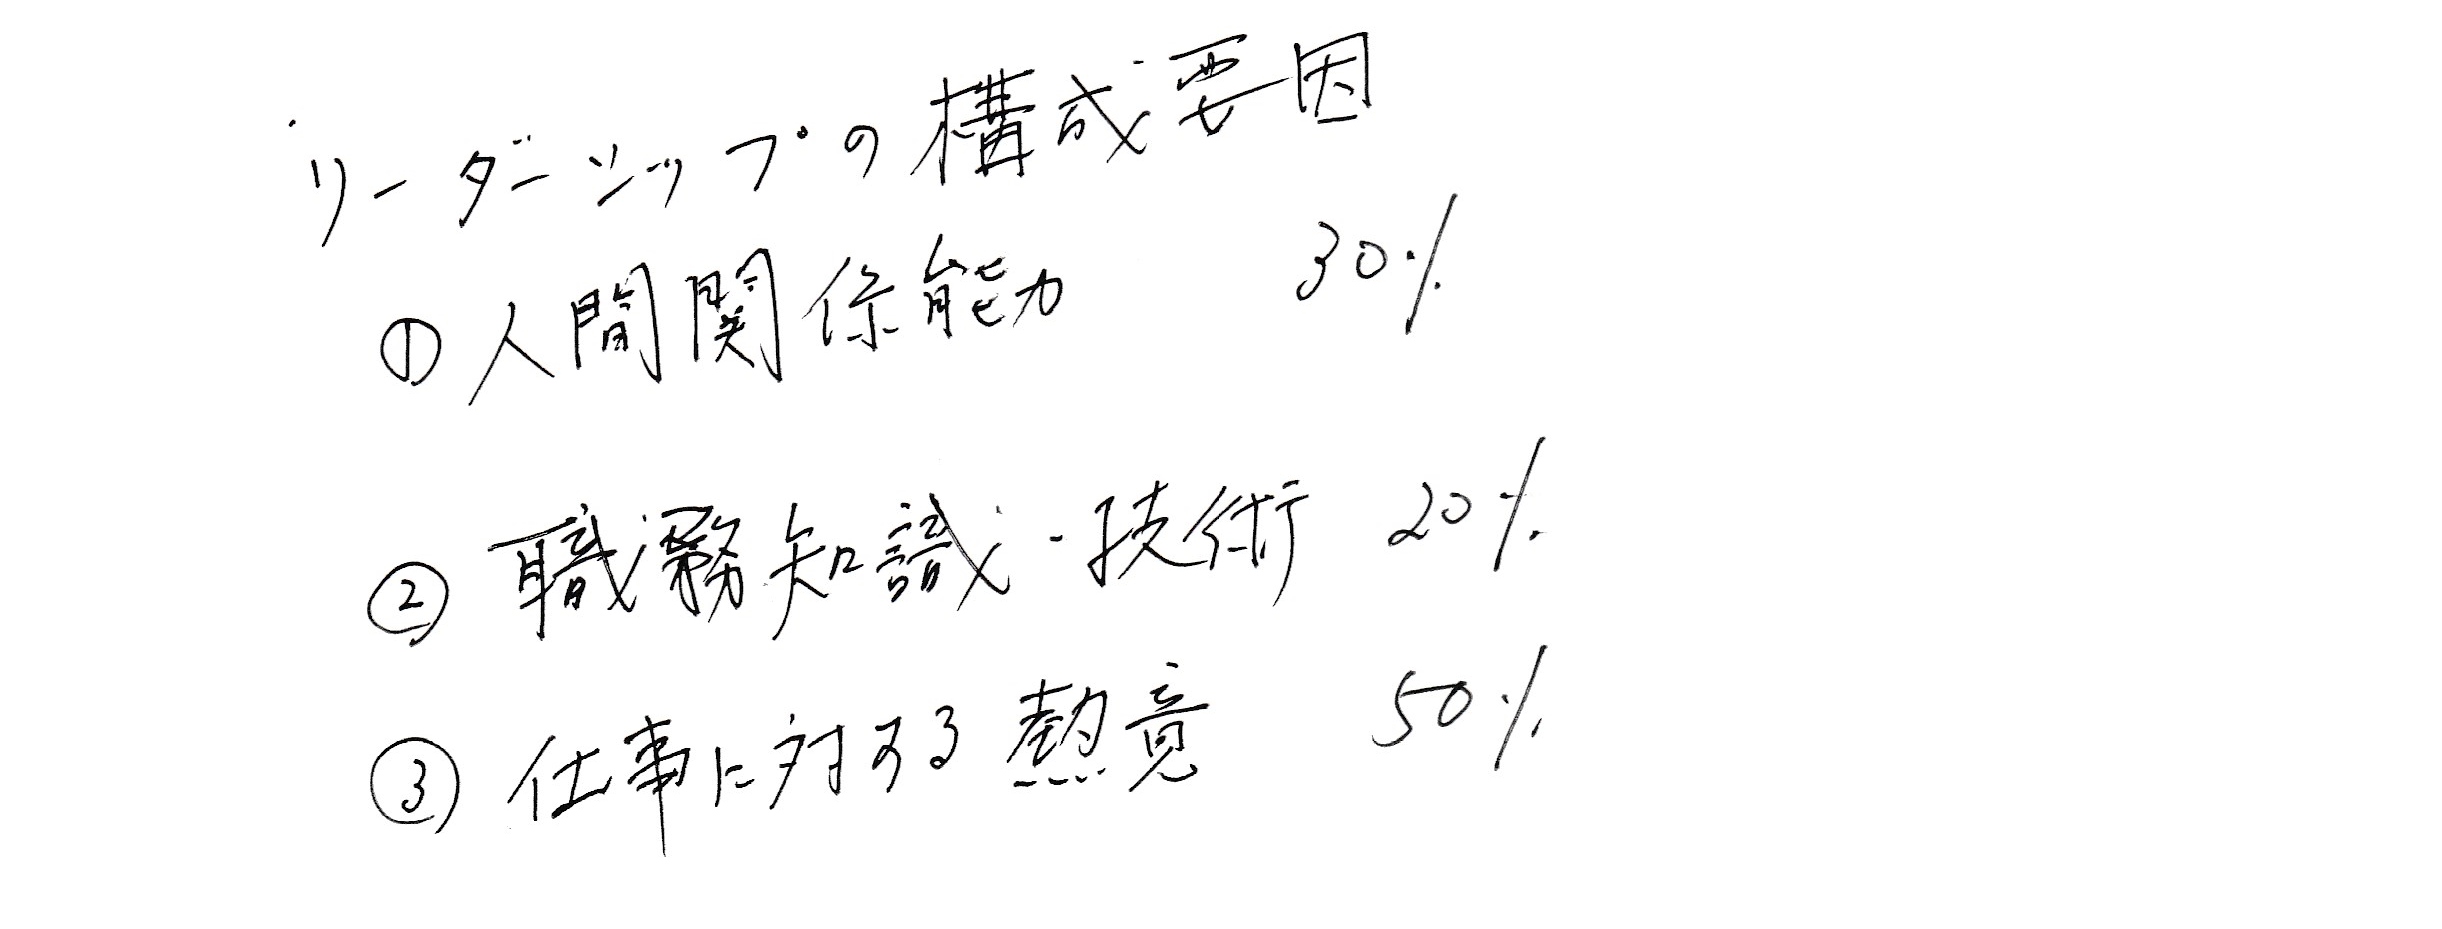 リーダーシップの構成要因
① 人間関係能力 30%
② 職務知識・技術 20%
③ 仕事に対する熱意 50%